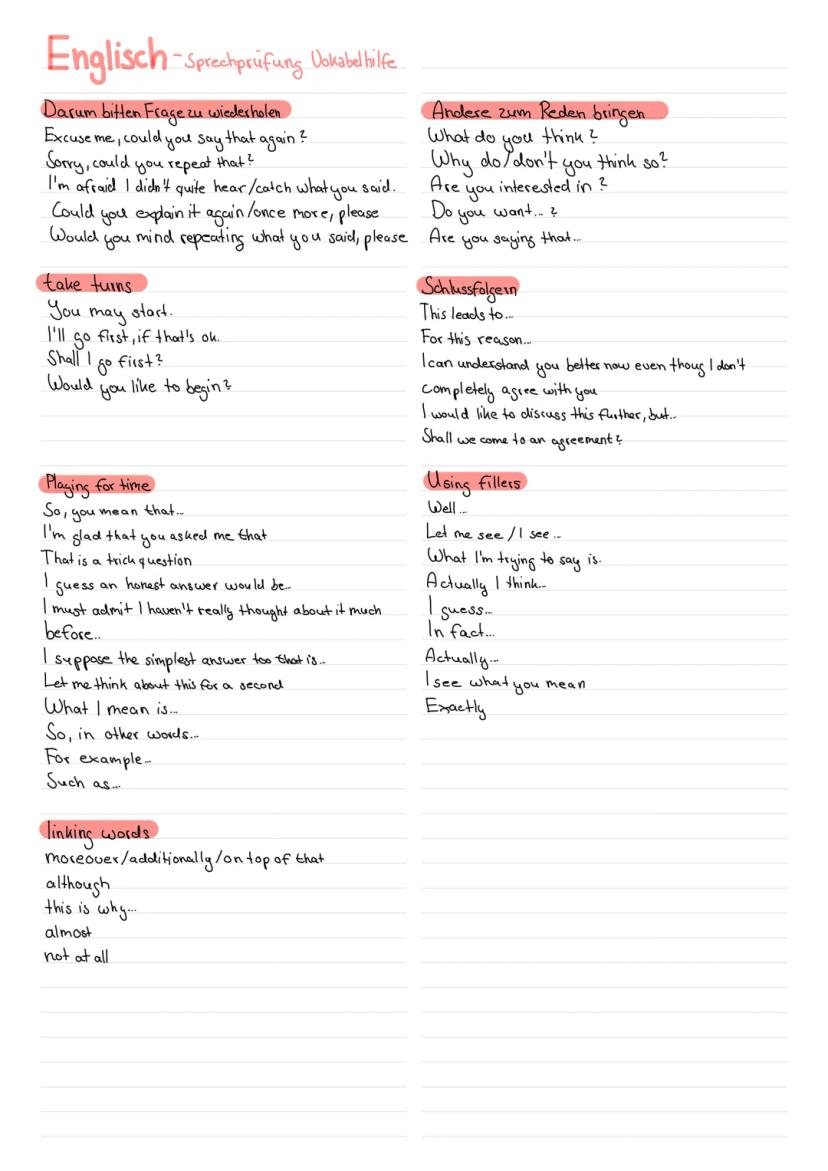 Englisch - Sprechprüfung Vokabelhilfe
Darum bitten Frage zu wiederholen
Excuse me, could you say that again?
Sorry, could you repeat that?
I'm afraid I didn't quite hear/catch what you said.
Could you explain it again/once more, please
Would you mind repeating what you said, please
take turns
You may start.
I'll go first, if that's ok.
Shall I go first?
Would you like to begin?
Playing for time
So, you mean that...
I'm glad that you asked me that
That is a trick question
I guess an honest answer would be...
I must admit I haven't really thought about it much
before..
I suppose the simplest answer too that is...
Let me think about this for a second
What I mean is...
So, in other words...
For example...
Such as...
linking words
moreover/additionally/on top of that
although
this is why...
almost
not at all
Andere zum Reden bringen
What do you think?
Why do/don't you think so?
Are you interested in?
Do you want... ?
Are you saying that...
Schlussfolgern
This leads to...
For this reason...
I can understand you better now even thoug I don't
completely agree with you
I would like to discuss this further, but...
Shall we come to an agreement?
Using fillers
Well...
Let me see / I see ...
What I'm trying to say is.
Actually I think...
I guess...
In fact...
Actually...
I see what you mean
Exactly